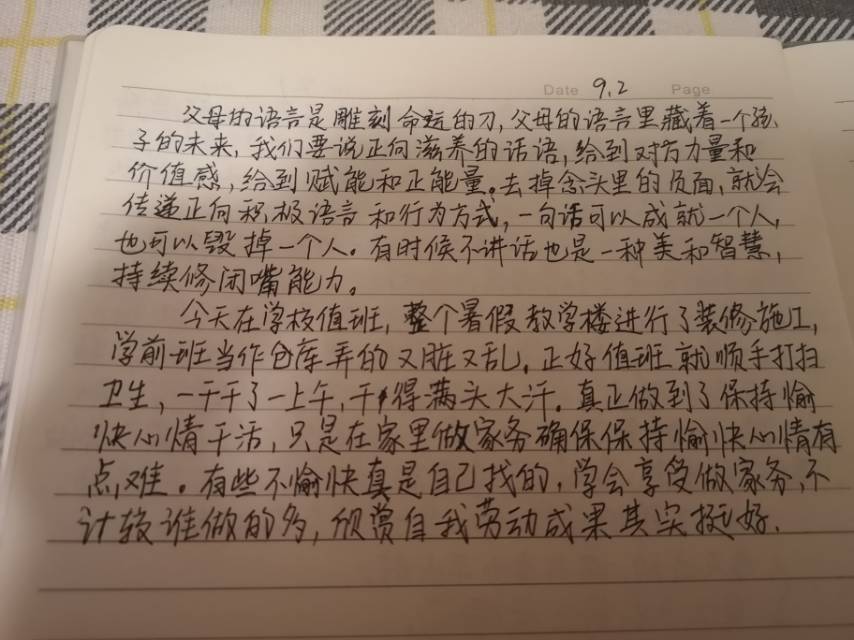 Date 9.2 Page
父母的语言是雕刻命运的刀,父母的语言里藏着一个孩
子的未来,我们要说正向滋养的话语,给到对方力量和
价值感,给到赋能和正能量。去掉念头里的负面,就会
传递正向积极语言和行为方式,一句话可以成就一个人,
也可以毁掉一个人。有时候不讲话也是一种美和智慧,
持续修闭嘴能力。
今天在学校值班,整个暑假教学楼进行了装修施工,
学前班当作仓库弄的又脏又乱。正好值班就顺手打扫
卫生,一干干了一上午,干得满头大汗。真正做到了保持愉
快心情干活,只是在家里做家务确保保持愉快心情有
点难。有些不愉快真是自己找的,学会享受做家务,不
计较谁做的多,欣赏自我劳动成果其实挺好.